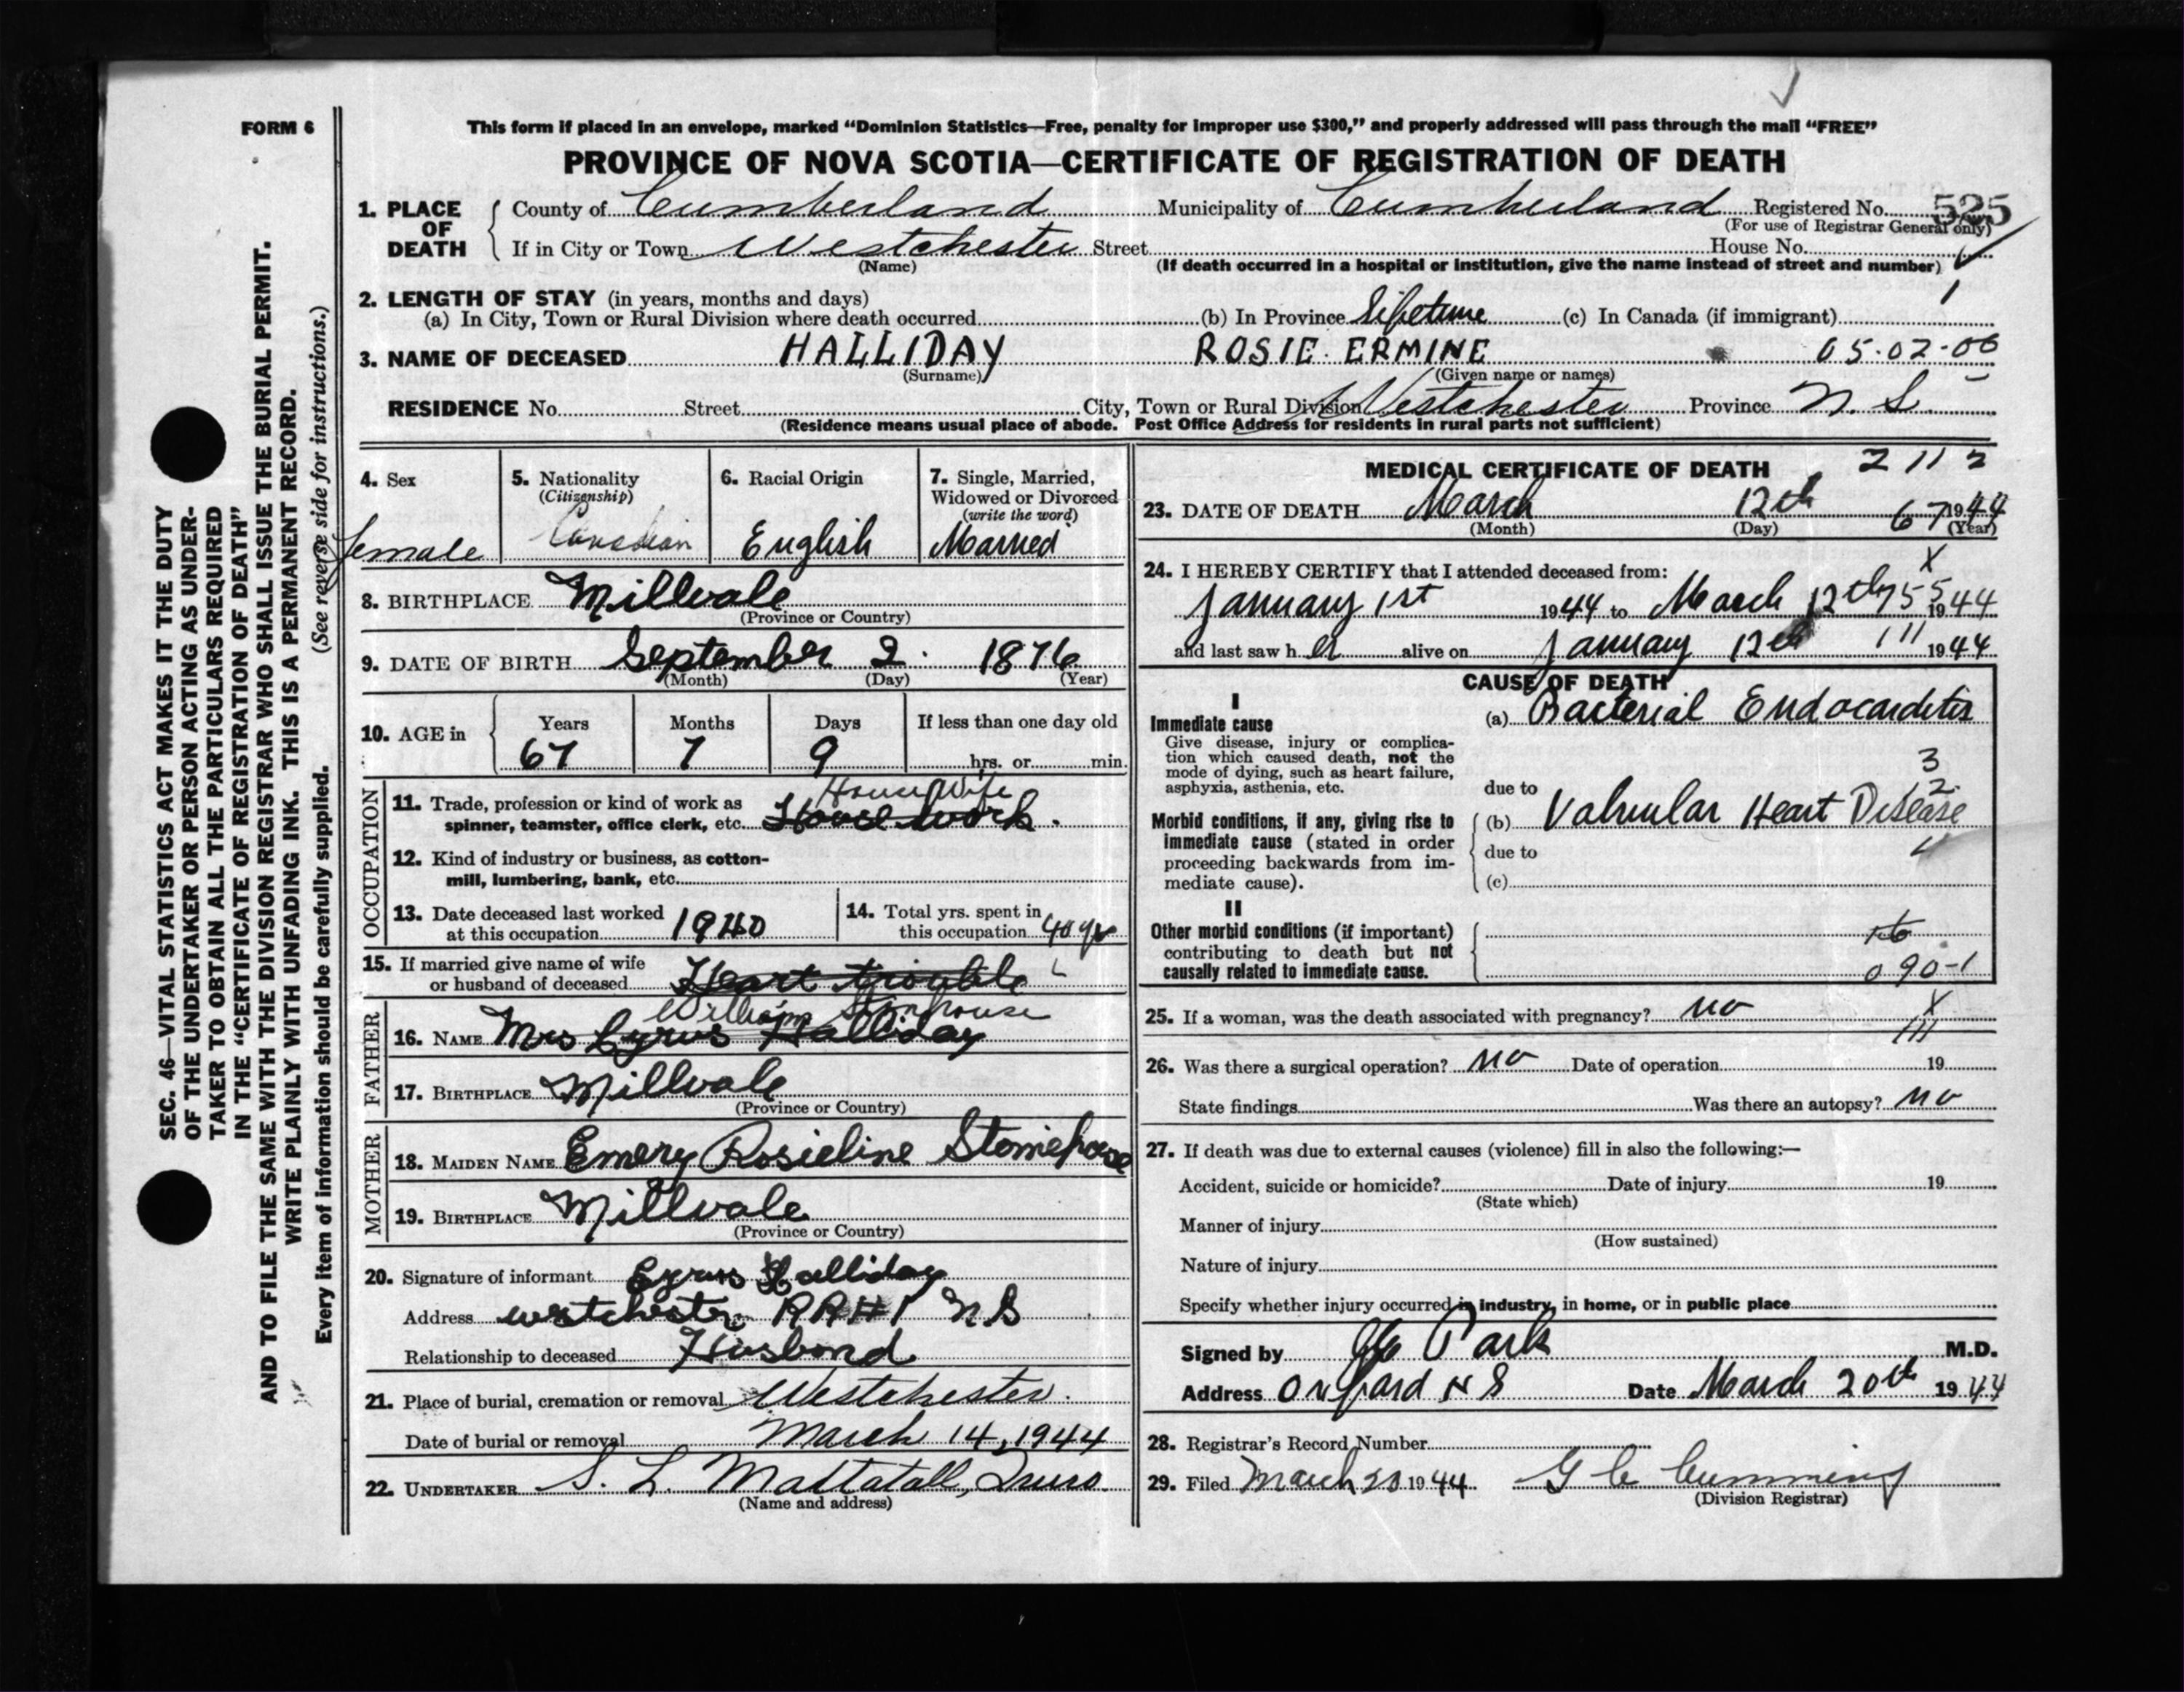 FORM 6
This form if placed in an envelope, marked “Dominion Statistics—Free, penalty for improper use $300,” and properly addressed will pass through the mail “FREE”
PROVINCE OF NOVA SCOTIA—CERTIFICATE OF REGISTRATION OF DEATH
1. PLACE OF DEATH County of Cumberland Municipality of Cumberland Registered No. 525
(For use of Registrar General only)
If in City or Town Westchester Street House No.
(Name) (If death occurred in a hospital or institution, give the name instead of street and number)
2. LENGTH OF STAY (in years, months and days)
(a) In City, Town or Rural Division where death occurred (b) In Province Lifetime (c) In Canada (if immigrant) 1
3. NAME OF DECEASED HALLIDAY ROSIE ERMINE 05-02-00
(Surname) (Given name or names)
RESIDENCE No. Street City, Town or Rural Division Westchester Province N.S.
(Residence means usual place of abode. Post Office Address for residents in rural parts not sufficient)
4. Sex
female
5. Nationality
(Citizenship)
Canadian
6. Racial Origin
English
7. Single, Married,
Widowed or Divorced
(write the word)
Married
8. BIRTHPLACE Millvale
(Province or Country)
9. DATE OF BIRTH September 2. 1876
(Month) (Day) (Year)
10. AGE in Years Months Days If less than one day old
67 7 9 hrs. or min.
OCCUPATION
House Wife
11. Trade, profession or kind of work as
spinner, teamster, office clerk, etc. House work.
12. Kind of industry or business, as cotton-
mill, lumbering, bank, etc.
13. Date deceased last worked
at this occupation 1940
14. Total yrs. spent in
this occupation 40 yr
15. If married give name of wife
or husband of deceased Heart trouble
FATHER
William Stonhouse
16. NAME Mrs Cyrus Halliday
17. BIRTHPLACE Millvale
(Province or Country)
MOTHER
18. MAIDEN NAME Emery Rosieline Stonehouse
19. BIRTHPLACE Millvale
(Province or Country)
20. Signature of informant Cyrus Halliday
Address westchester RR#1 NS
Relationship to deceased Husbond
21. Place of burial, cremation or removal Westchester.
Date of burial or removal March 14, 1944
22. UNDERTAKER S. L. Mattatall, Truro.
(Name and address)
MEDICAL CERTIFICATE OF DEATH 2 11 2
23. DATE OF DEATH March 12th 67 1944
(Month) (Day) (Year)
24. I HEREBY CERTIFY that I attended deceased from: X
January 1st 1944 to March 12th 755 1944
and last saw her alive on January 12th 111 1944
CAUSE OF DEATH
I
Immediate cause (a) Bacterial Endocarditis
Give disease, injury or complica-
tion which caused death, not the
mode of dying, such as heart failure,
asphyxia, asthenia, etc. due to
3
2
Morbid conditions, if any, giving rise to (b) Valvular Heart Disease
immediate cause (stated in order due to
proceeding backwards from im-
mediate cause). (c)
II
Other morbid conditions (if important) 16
contributing to death but not
causally related to immediate cause. 090-1
25. If a woman, was the death associated with pregnancy? no X
111
26. Was there a surgical operation? no Date of operation 19
State findings Was there an autopsy? no
27. If death was due to external causes (violence) fill in also the following:—
Accident, suicide or homicide? Date of injury 19
(State which)
Manner of injury
(How sustained)
Nature of injury
Specify whether injury occurred in industry, in home, or in public place
Signed by Park M.D.
Address Oxford N S Date March 20th 1944
28. Registrar's Record Number
29. Filed March 20 1944 G C Cumming
(Division Registrar)
SEC. 46—VITAL STATISTICS ACT MAKES IT THE DUTY
OF THE UNDERTAKER OR PERSON ACTING AS UNDER-
TAKER TO OBTAIN ALL THE PARTICULARS REQUIRED
IN THE “CERTIFICATE OF REGISTRATION OF DEATH”
AND TO FILE THE SAME WITH THE DIVISION REGISTRAR WHO SHALL ISSUE THE BURIAL PERMIT.
WRITE PLAINLY WITH UNFADING INK. THIS IS A PERMANENT RECORD.
Every item of information should be carefully supplied. (See reverse side for instructions.)